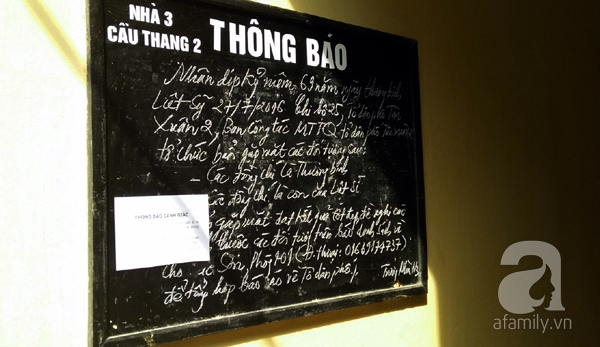 NHÀ 3
CẦU THANG 2
THÔNG BÁO
Nhân dịp kỷ niệm 63 năm ngày thương binh
Liệt Sỹ 27/7/2016 Chi bộ 25, Tổ dân phố Tân
Xuân 2, Ban công tác MTTQ tổ dân phố Tân Xuân 2
tổ chức buổi gặp mặt các đối tượng sau:
- Các đồng chí là Thương binh
Các đồng chí là con của Liệt Sĩ
gặp mặt đạt kết quả tốt đẹp đề nghị các
thuộc các đối tượng trên báo danh sách về
cho Sơn Phòng 401 (Đ.thoại: 01669174737)
để tổng hợp báo cáo về Tổ dân phố.
THÔNG BÁO CẢNH GIÁC
a
afamily.vn